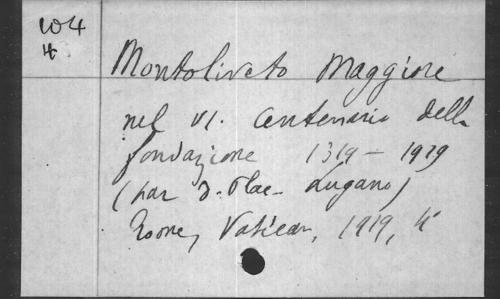 104
4
Montoliveto Maggiore
nel VI. Centenario della
fondazione 1319 – 1919
(par D. Plac. Lugano)
Rome, Vatican, 1919, 4°